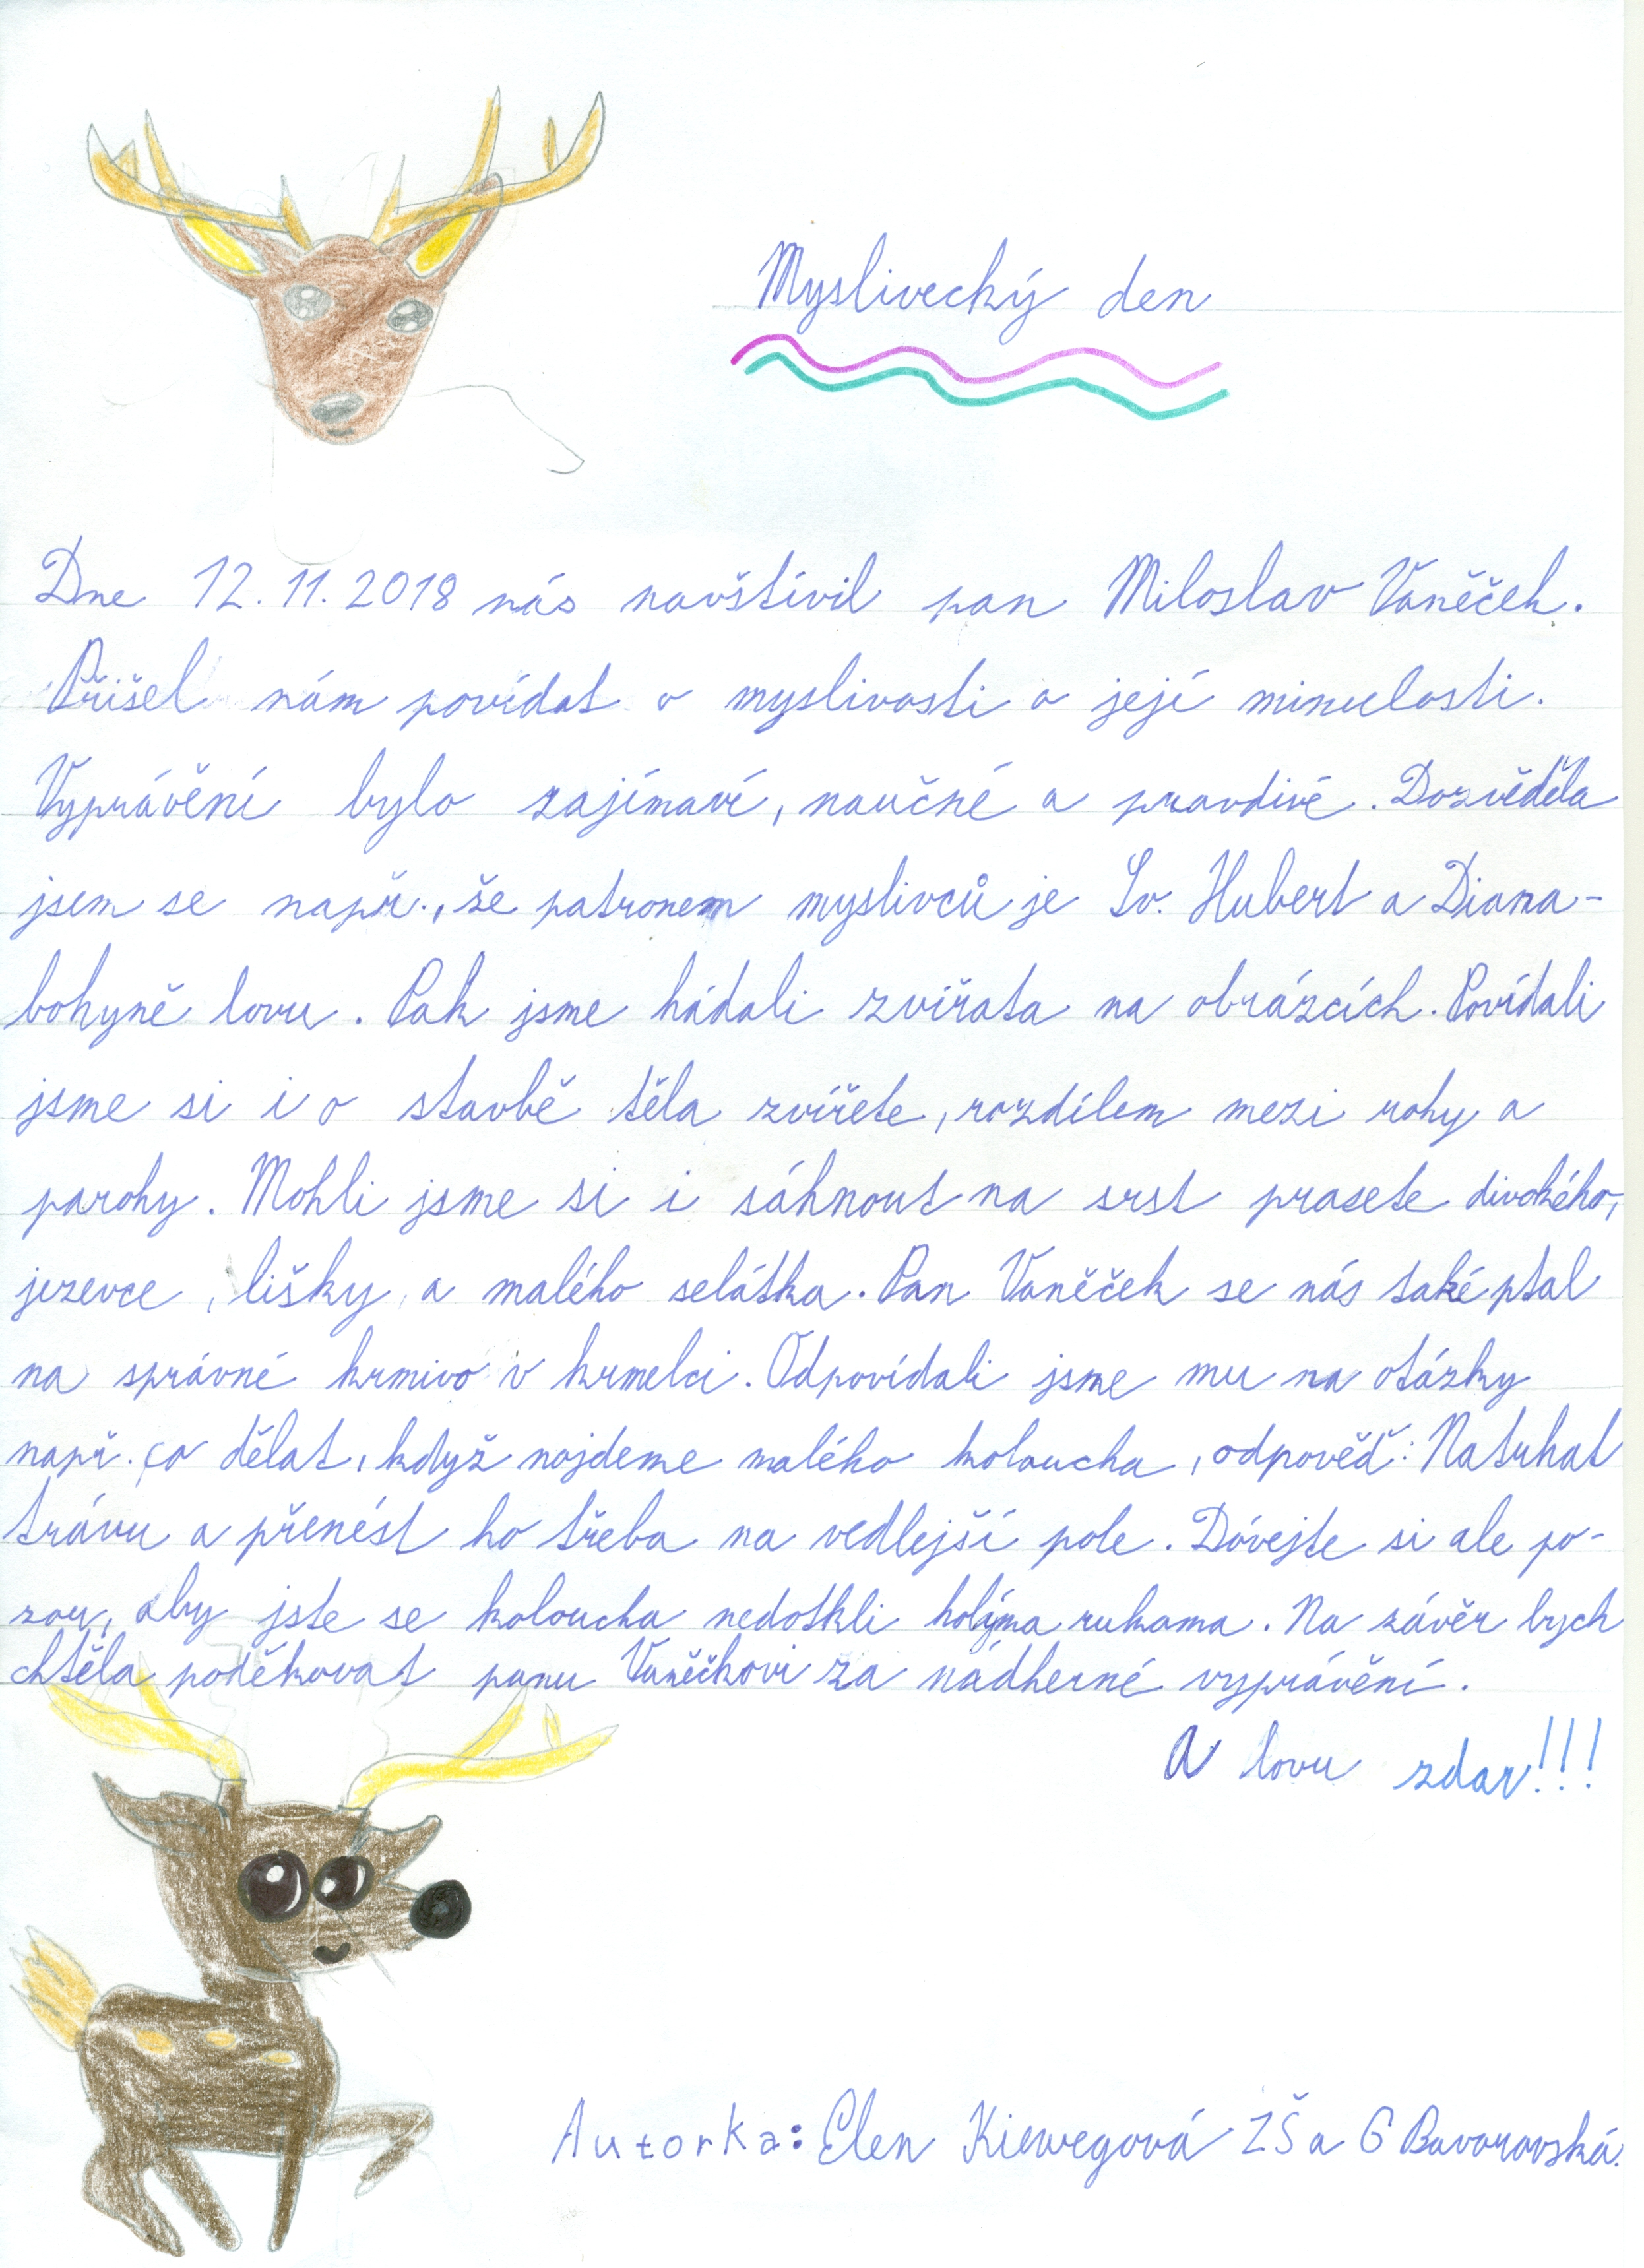 Myslivecký den
Dne 12.11.2018 nás navštívil pan Miloslav Vaněček.
Přišel nám povídat o myslivosti a její minulosti.
Vyprávění bylo zajímaví, naučné a pravdivé. Dozvěděla
jsem se např., že patronem myslivců je Sv. Hubert a Diana-
bohyně lovu. Pak jsme hádali zvířata na obrázcích. Povídali
jsme si i o stavbě těla zvířete, rozdílem mezi rohy a
parohy. Mohli jsme si i sáhnout na srst prasete divokého,
jezevce, lišky, a malého selátka. Pan Vaněček se nás také ptal
na správné krmivo v krmelci. Odpovídali jsme mu na otázky
např. co dělat, když najdeme malého koloucha, odpověď: Natrhat
trávu a přenést ho třeba na vedlejší pole. Dávejte si ale po-
zor, aby jste se koloucha nedotkli holýma rukama. Na závěr bych
chtěla poděkovat panu Vaněčkovi za nádherné vyprávění.
A lovu zdar!!!
Autorka: Elen Kiewegová ZŠ a G Bavorovská.